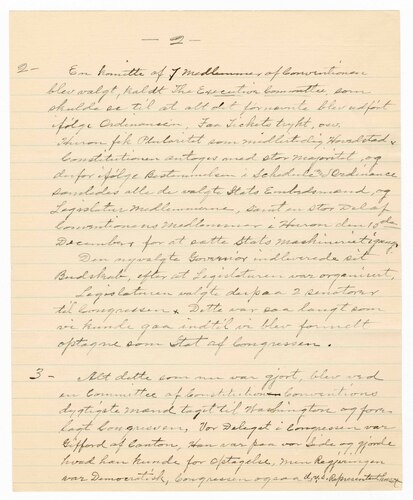 — 2 —
2 - En komitte af 7 Medlemmer af Conventionen
blev valgt, kaldt The Executive Committee, som
skulde se til at alt det fornævnte blev udført
ifølge Ordinansen, Faa Tickets trykt, osv.
Huron fik Pluralitet som midlertidig Hovedstad &
Constitutionen antoges med stor Majoritet, og
derfor ifølge Bestemmelsen i Schedule & Ordinance
samledes alle de valgte Stats Embedsmænd, og
Legislatur Medlemmerne, samt en stor Del af
Conventionens Medlemmer i Huron den 15de
December, for at sætte Stats Maskineriet igang.
Den nyvalgte Governor indleverede sit
Budskab, efter at Legislaturen var organisert,
Legislaturen valgte derpaa 2 senatorer
til Congressen & Dette var saa langt som
vi kunde gaa indtil vi blev formelt
optagne som Stat af Congressen.
3 - Alt dette som nu var gjort, blev ved
en Committee af Constitution Conventions
dygtigste mænd taget til Washington og fore-
lagt Congressen, Vor Delegat i Congressen var
Gifford af Canton, Han var paa vor Side og gjorde
hvad han kunde for Optagelse, men Regjeringen
var Demokratisk, Congressen ogsaa d.v.s. Representanthuset